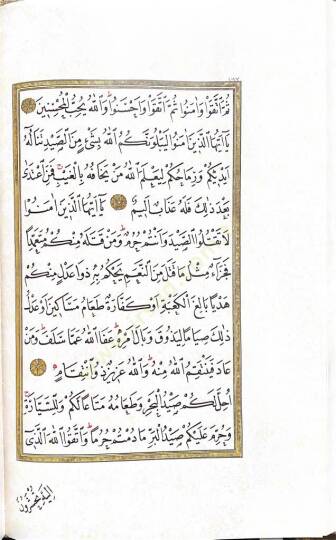 ١٢٢
ثُمَّ اتَّقَوْا وَاٰمَنُوا ثُمَّ اتَّقَوْا وَاَحْسَنُوا وَاللّٰهُ يُحِبُّ الْمُحْسِنِينَ
يَآ اَيُّهَا الَّذِينَ اٰمَنُوا لَيَبْلُوَنَّكُمُ اللّٰهُ بِشَىْءٍ مِنَ الصَّيْدِ تَنَالُهُ
اَيْدِيكُمْ وَرِمَاحُكُمْ لِيَعْلَمَ اللّٰهُ مَنْ يَخَافُهُ بِالْغَيْبِ فَمَنِ اعْتَدٰى
بَعْدَ ذٰلِكَ فَلَهُ عَذَابٌ اَلِيمٌ يَآ اَيُّهَا الَّذِينَ اٰمَنُوا
لَا تَقْتُلُوا الصَّيْدَ وَاَنْتُمْ حُرُمٌ وَمَنْ قَتَلَهُ مِنْكُمْ مُتَعَمِّدًا
فَجَزَآءٌ مِثْلُ مَا قَتَلَ مِنَ النَّعَمِ يَحْكُمُ بِهِ ذَوَا عَدْلٍ مِنْكُمْ
هَدْيًا بَالِغَ الْكَعْبَةِ اَوْ كَفَّارَةٌ طَعَامُ مَسَاكِينَ اَوْ عَدْلُ
ذٰلِكَ صِيَامًا لِيَذُوقَ وَبَالَ اَمْرِهِ عَفَا اللّٰهُ عَمَّا سَلَفَ وَمَنْ
عَادَ فَيَنْتَقِمُ اللّٰهُ مِنْهُ وَاللّٰهُ عَزِيزٌ ذُو انْتِقَامٍ
اُحِلَّ لَكُمْ صَيْدُ الْبَحْرِ وَطَعَامُهُ مَتَاعًا لَكُمْ وَلِلسَّيَّارَةِ
وَحُرِّمَ عَلَيْكُمْ صَيْدُ الْبَرِّ مَا دُمْتُمْ حُرُمًا وَاتَّقُوا اللّٰهَ الَّذِى
اِلَيْهِ تُحْشَرُونَ